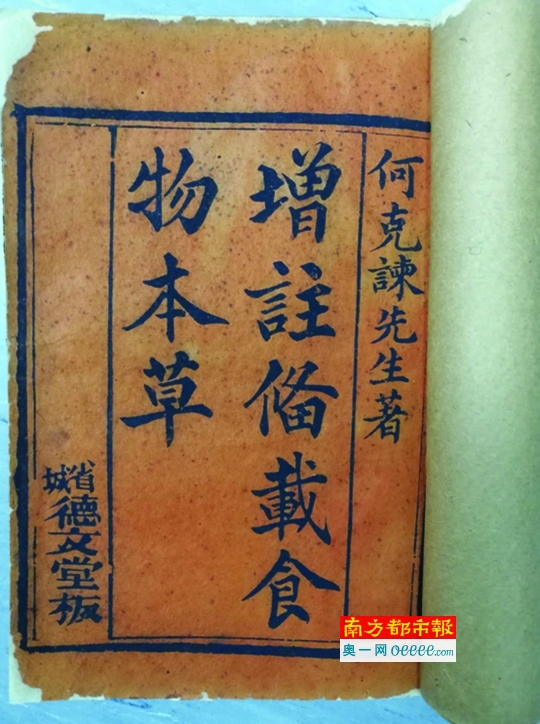 何克諫先生著
增註俻載食
物本草
省城德文堂板
南方都市報
奥一网 oeeee.com